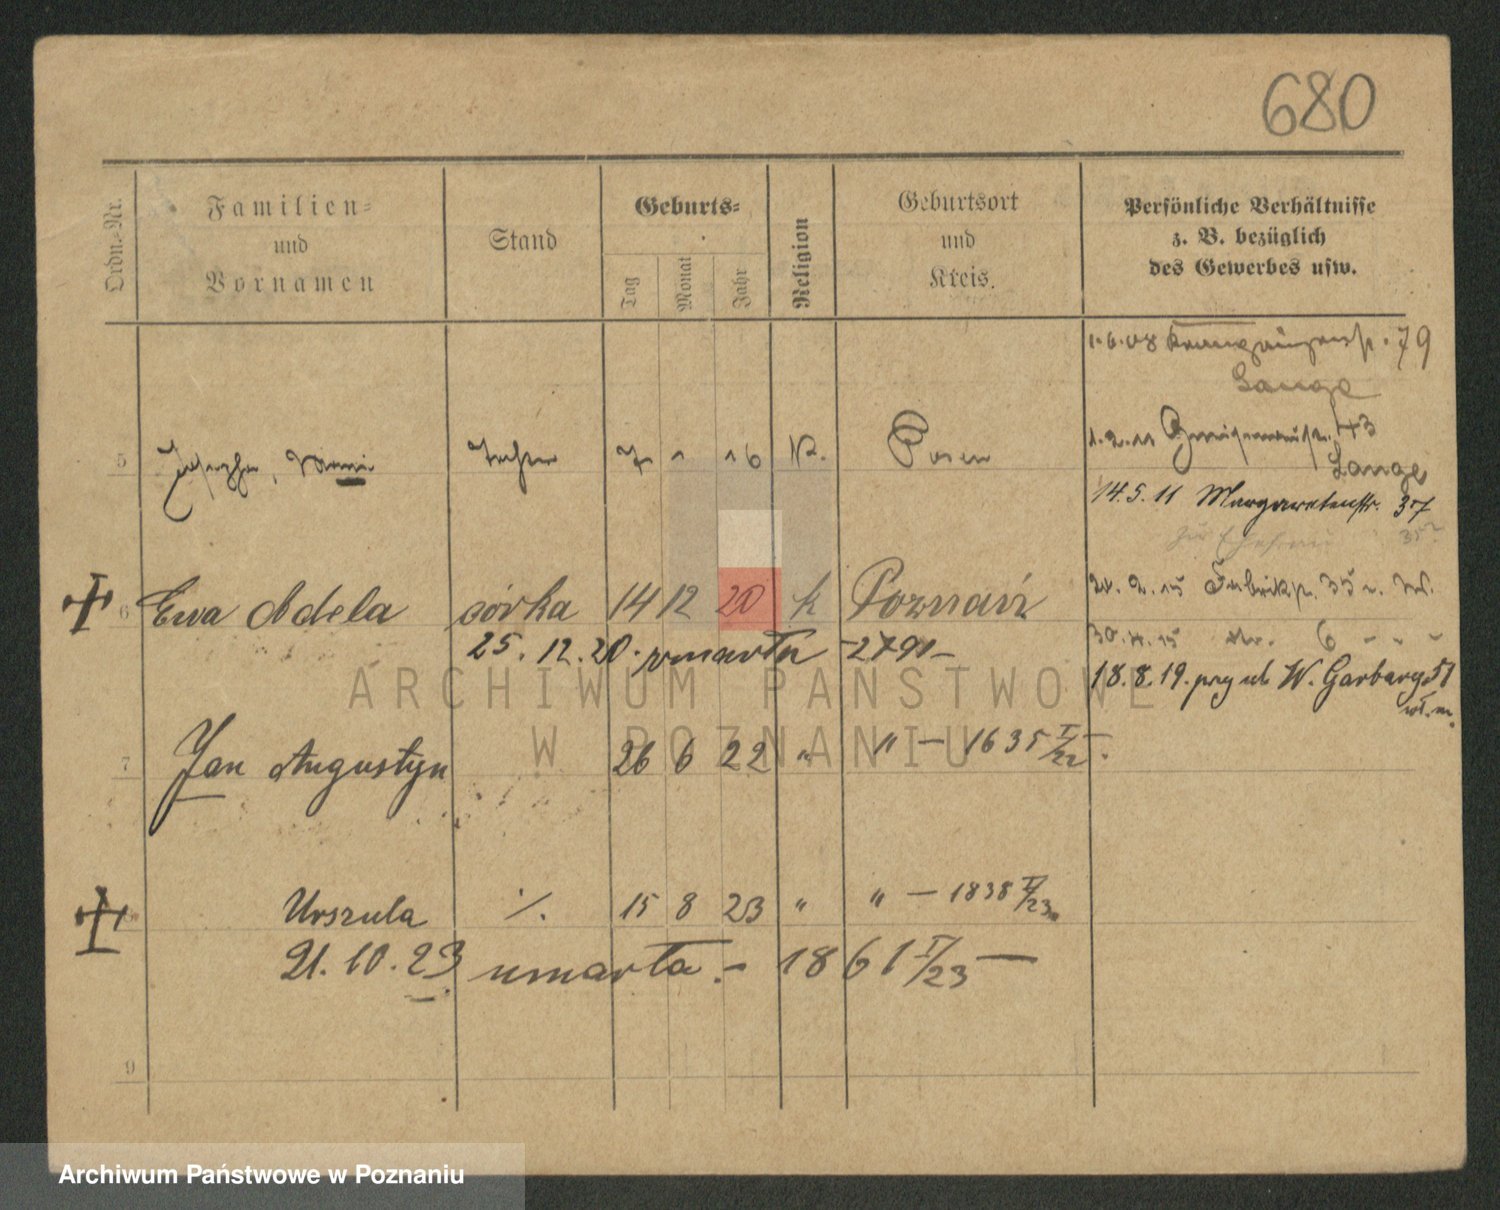 680
Ordn.-Nr.
Familien-
und
Vornamen
Stand
Geburts-
Tag
Monat
Jahr
Religion
Geburtsort
und
Kreis.
Persönliche Verhältnisse
z. B. bezüglich
des Gewerbes usw.
1.6.08 79
Lange
5 Tochter 7 1 16 K. Posen
1.2.11 43
Lange
14.5.11 Margaretenstr. 37
zur Ehefrau
6 Ewa Adela córka 14 12 20 k Poznań
25. 12. 20. zmarła - 2791 -
Fabrikstr. 35
6 - - -
18.8.19. W. Garbary 51
7 Jan Augustyn 26 6 22 " " - 1635 I/22 -.
Urszula ./. 15 8 23 " " - 1838 I/23.
21. 10. 23 umarła. - 1861 I/23 -
9
ARCHIWUM PAŃSTWOWE
W POZNANIU
Archiwum Państwowe w Poznaniu